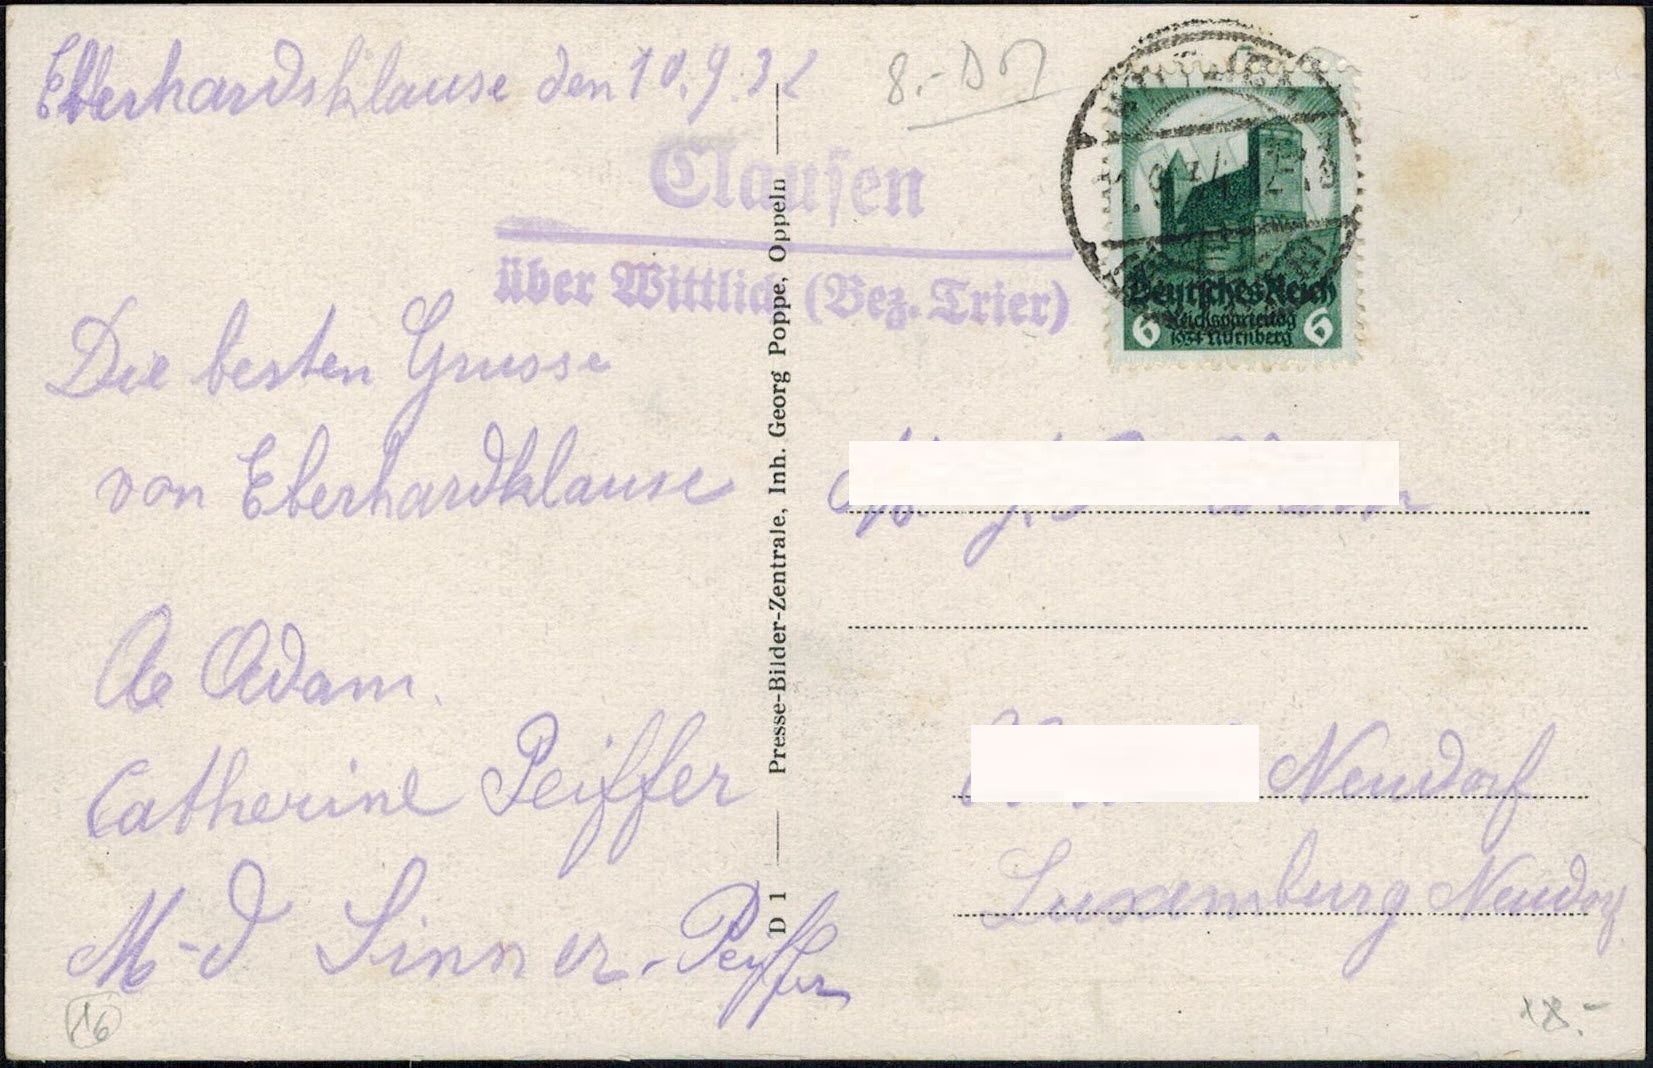 Eberhardsklause den 10.9.32
8.-
Clausen
über Wittlich (Bez. Trier)
Deutsches Reich
Reichsparteitag
1934 Nürnberg
6 6
Die besten Grusse
von Eberhardklause
Adam.
Catherine Peiffer
M-d Sinner-Peiffer
D 1 Presse-Bilder-Zentrale, Inh. Georg Poppe, Oppeln
Neudorf
Luxemburg Neudorf
16
18.-